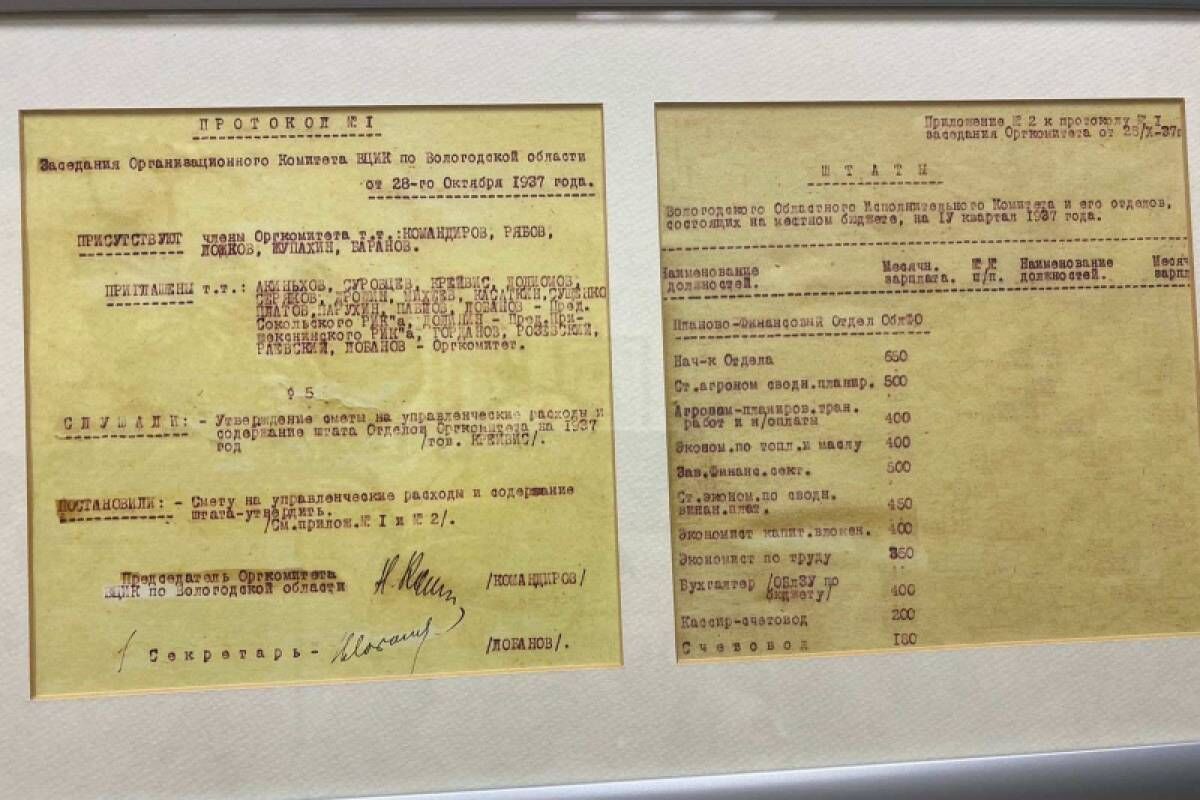 ПРОТОКОЛ №I
Заседания Организационного Комитета ВЦИК по Вологодской области
от 28-го Октября 1937 года.
ПРИСУТСТВУЮТ члены Оргкомитета т.т.:КОМАНДИРОВ, РЯБОВ,
ЛОЖКОВ, ЖУПАХИН, БАРАНОВ.
ПРИГЛАШЕНЫ т.т.: АКИНЬХОВ, СУРОВЦЕВ, КРЕЙВИС,
МИХЕЕВ, КАСАТКИН,
ПЛАТОВ, ПАРУХИН, ПАВЛОВ, ЛОБАНОВ - Пред.
Сокольского РИК"а, - Пред.При-
шекснинского РИК"а, ГОРДАНОВ, РОЗОВСКИЙ,
РАЕВСКИЙ, ЛОБАНОВ - Оргкомитет.
§ 5
СЛУШАЛИ: - Утверждение сметы на управленческие расходы и
содержание штата Отделов Оргкомитета на 1937
год /тов. КРЕЙВИС/.
ПОСТАНОВИЛИ: - Смету на управленческие расходы и содержание
штата-утвердить.
/См.прилож.№ I и № 2/.
Председатель Оргкомитета
ВЦИК по Вологодской области /КОМАНДИРОВ/
Секретарь- /ЛОБАНОВ/.
Приложение № 2 к протоколу № I
заседания Оргкомитета от 28/X-37г
ШТАТЫ
Вологодского Областного Исполнительного Комитета и его отделов,
состоящих на местном бюджете, на IУ квартал 1937 года.
Наименование Месячн. №№ Наименование Месяч
должностей. зарплата. п/п. должностей. зарпл
Планово-Финансовый Отдел ОблФО
Нач-к Отдела 650
Ст.агроном сводн.планир. 500
Агроном-планиров.тран.
работ и н/оплаты 400
Эконом.по топл.и маслу 400
Зав.Финанс.сект. 500
Ст.эконом.по сводн.
винан.плат. 450
Экономист капит.вложен. 400
Экономист по труду 350
Бухгалтер /ОблЗУ по
бюджету/ 400
Кассир-счетовод 200
Счетовод 180